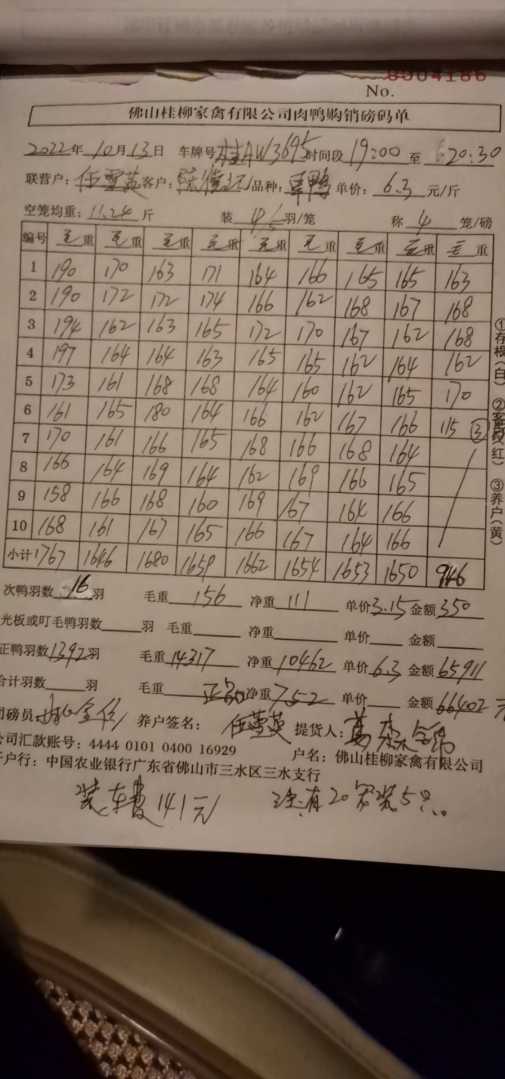 No. 0004186
佛山桂柳家禽有限公司肉鸭购销磅码单
2022年 10月13日 车牌号 桂AW3695 时间段 19:00 至 20:30
联营户: 任雪英 客户: 品种: 草鸭 单价: 6.3 元/斤
空笼均重: 11.24 斤 装 羽/笼 称 4 笼/磅
编号 毛重 毛重 毛重 毛重 毛重 毛重 毛重 毛重 毛重
1 190 170 163 171 164 166 165 165 163
2 190 172 172 174 166 162 168 167 168
3 194 162 163 165 172 170 167 162 168
4 197 164 164 163 165 165 162 164 162
5 173 161 168 168 164 160 162 165 170
6 161 165 180 164 166 162 167 166 115 ③
7 170 161 166 165 168 166 168 164
8 166 164 169 164 162 169 166 165
9 158 166 168 160 169 167 164 166
10 168 161 167 165 166 167 164 166
小计 1767 1646 1680 1659 1662 1654 1653 1650 946
①存根(白) ②客户(红) ③养户(黄)
次鸭羽数 16 羽 毛重 156 净重 111 单价 3.15 金额 350
光板或叮毛鸭羽数 羽 毛重 净重 单价 金额
正鸭羽数 1392 羽 毛重 14317 净重 10462 单价 6.3 金额 65911
合计羽数 羽 毛重 正品 净重 7.52 单价 金额 66402 元
司磅员: 养户签名: 任雪英 提货人:
公司汇款账号: 4444 0101 0400 16929 户名: 佛山桂柳家禽有限公司
开户行: 中国农业银行广东省佛山市三水区三水支行
装车费 141元 注:有20笼装5只.